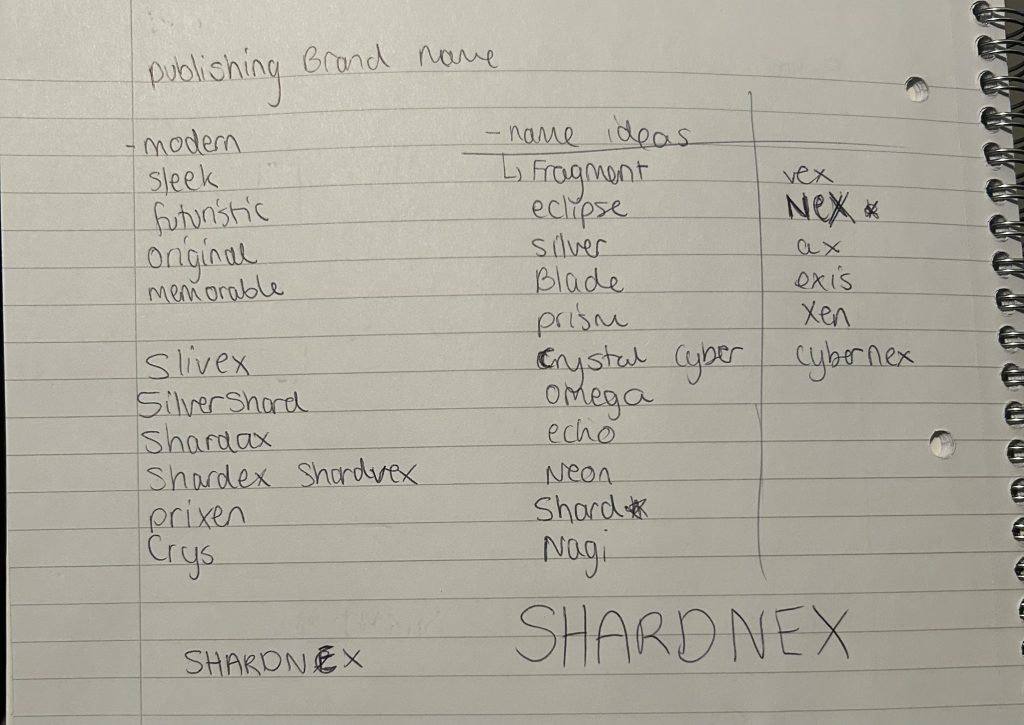 publishing Brand name
- modern
sleek
futuristic
original
memorable
Slivex
SilverShard
Shardax
Shardex Shardvex
prixen
Crys
- name ideas
↳ Fragment
eclipse
silver
Blade
prism
Crystal Cyber
Omega
echo
Neon
Shard*
Nagi
vex
NeX *
ax
exis
xen
cybernex
SHARDNEX
SHARDNEX